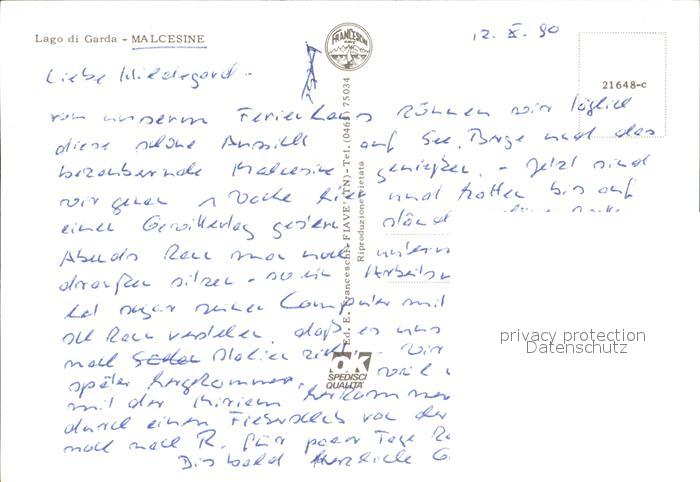 Lago di Garda - MALCESINE
12. X. 90
21648-c
Liebe Hildegard -
von unserem Ferienhaus können wir täglich
diese schöne Aussicht auf See, Berge und das
bezaubernde Malcesine genießen. - Jetzt sind
wir genau 1 Woche hier und hatten bis auf
einen Gewittertag gestern
Abends kann man noch
draußen sitzen - so ein Arbeits
hat sogar seinen Computer mit
verstehen, daß es uns
nach Italien zieht. Wir
später hergekommen, weil
mit der Miriam herkommen
durch einen von der
noch nach R. für paar Tage
Bis bald Herzliche G
FRANCESCHI
Ed. E. Franceschi - FIAVE' (TN) - Tel. (0465) 75034
Riproduzione vietata
OK
SPEDISCI
QUALITA'
privacy protection
Datenschutz